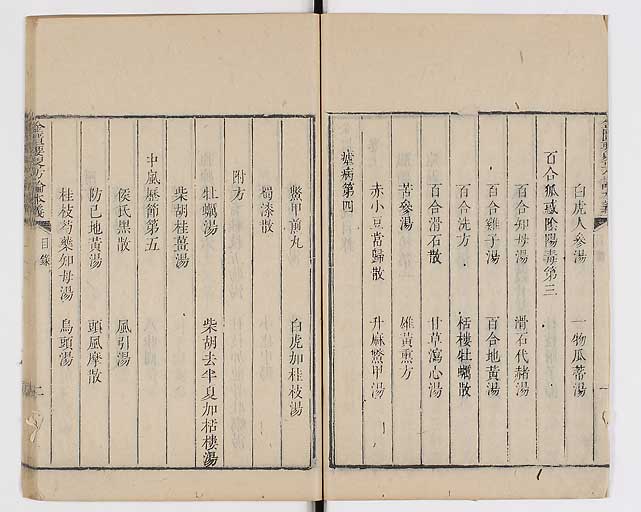 白虎人參湯 一物瓜蒂湯
百合狐惑陰陽毒第三
百合知母湯 滑石代赭湯
百合雞子湯 百合地黃湯
百合洗方 栝樓牡蠣散
百合滑石散 甘草瀉心湯
苦參湯 雄黃熏方
赤小豆當歸散 升麻鱉甲湯
瘧病第四
鱉甲煎丸 白虎加桂枝湯
蜀漆散
附方
牡蠣湯 柴胡去半夏加栝樓湯
柴胡桂薑湯
中風歷節第五
侯氏黑散 風引湯
防己地黃湯 頭風摩散
桂枝芍藥知母湯 烏頭湯
金匱要畧方論本義 目錄 二